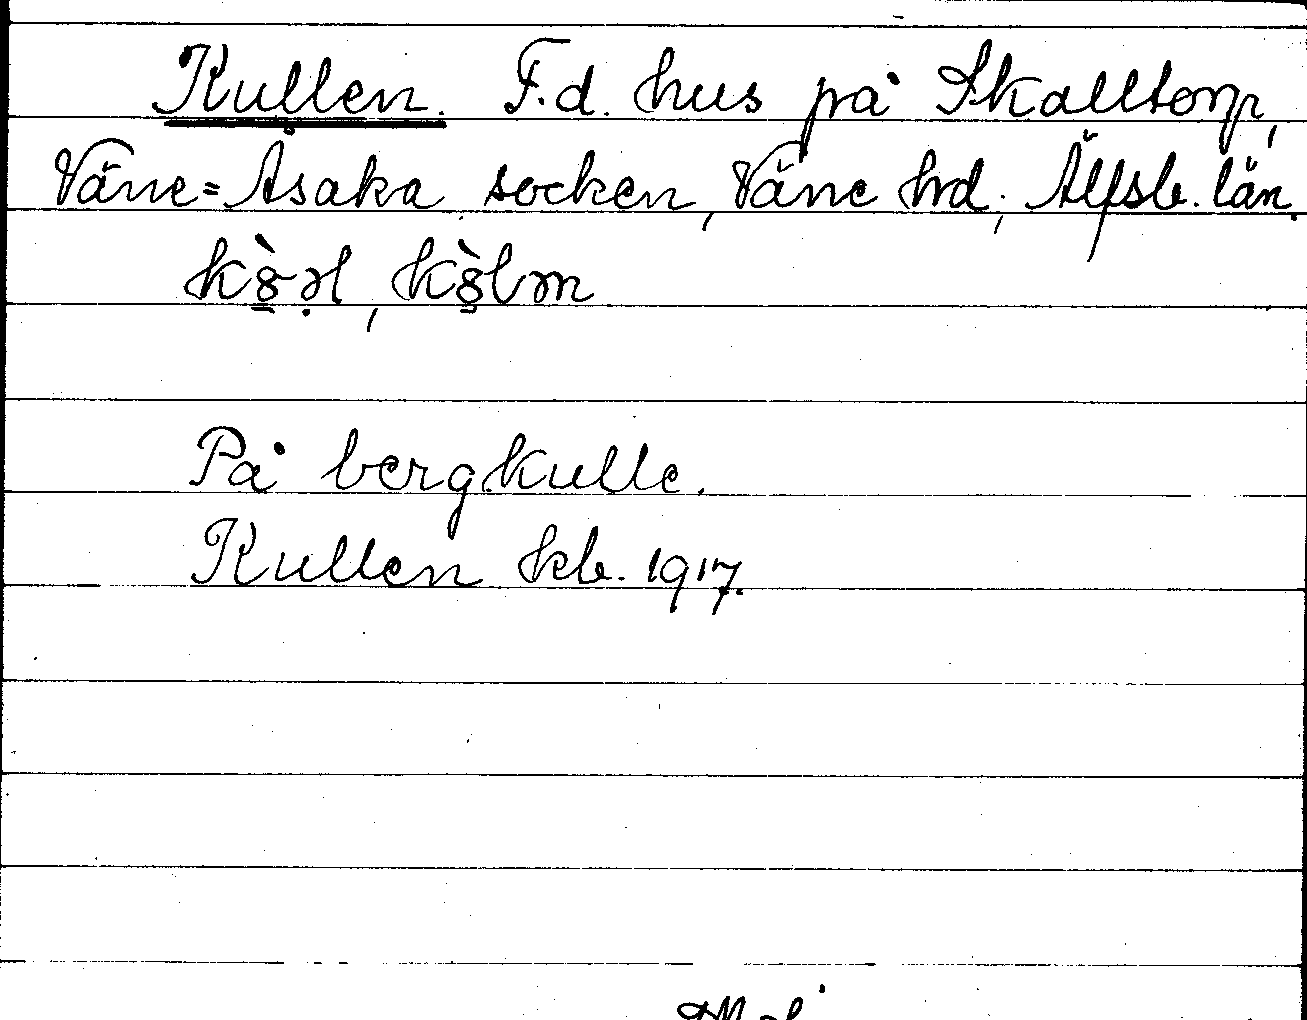 Kullen. F.d. hus på Skalltorp,
Väne=Åsaka socken, Väne hd; Älfsb. län.
På bergkulle.
Kullen kb. 1917.